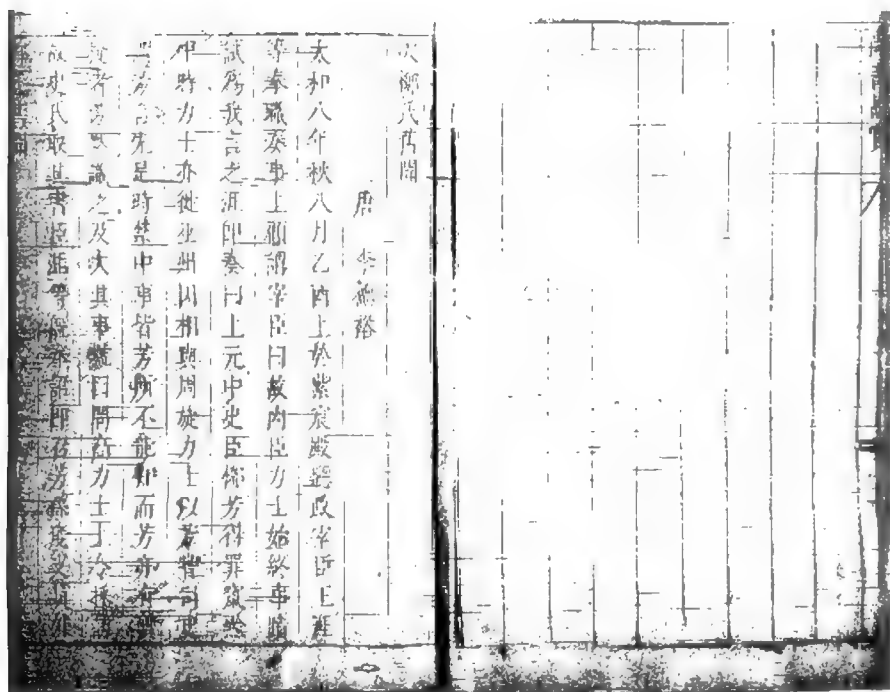 次柳氏舊聞
唐 李德裕
太和八年秋八月乙酉上於紫宸殿聽政宰臣王涯
等奉職奏事上顧謂宰臣曰故內臣力士始終事
試為我言之涯即奏曰上元中史臣柳芳得罪竄黔
中時力士亦徙巫州因相與周旋力士以芳嘗司史
為芳言先是時禁中事皆芳所不能知而芳亦有
疑者芳默識之及次其事號曰問高力士
故史氏取其書臣涯等既奉詔即召芳孫度支員外